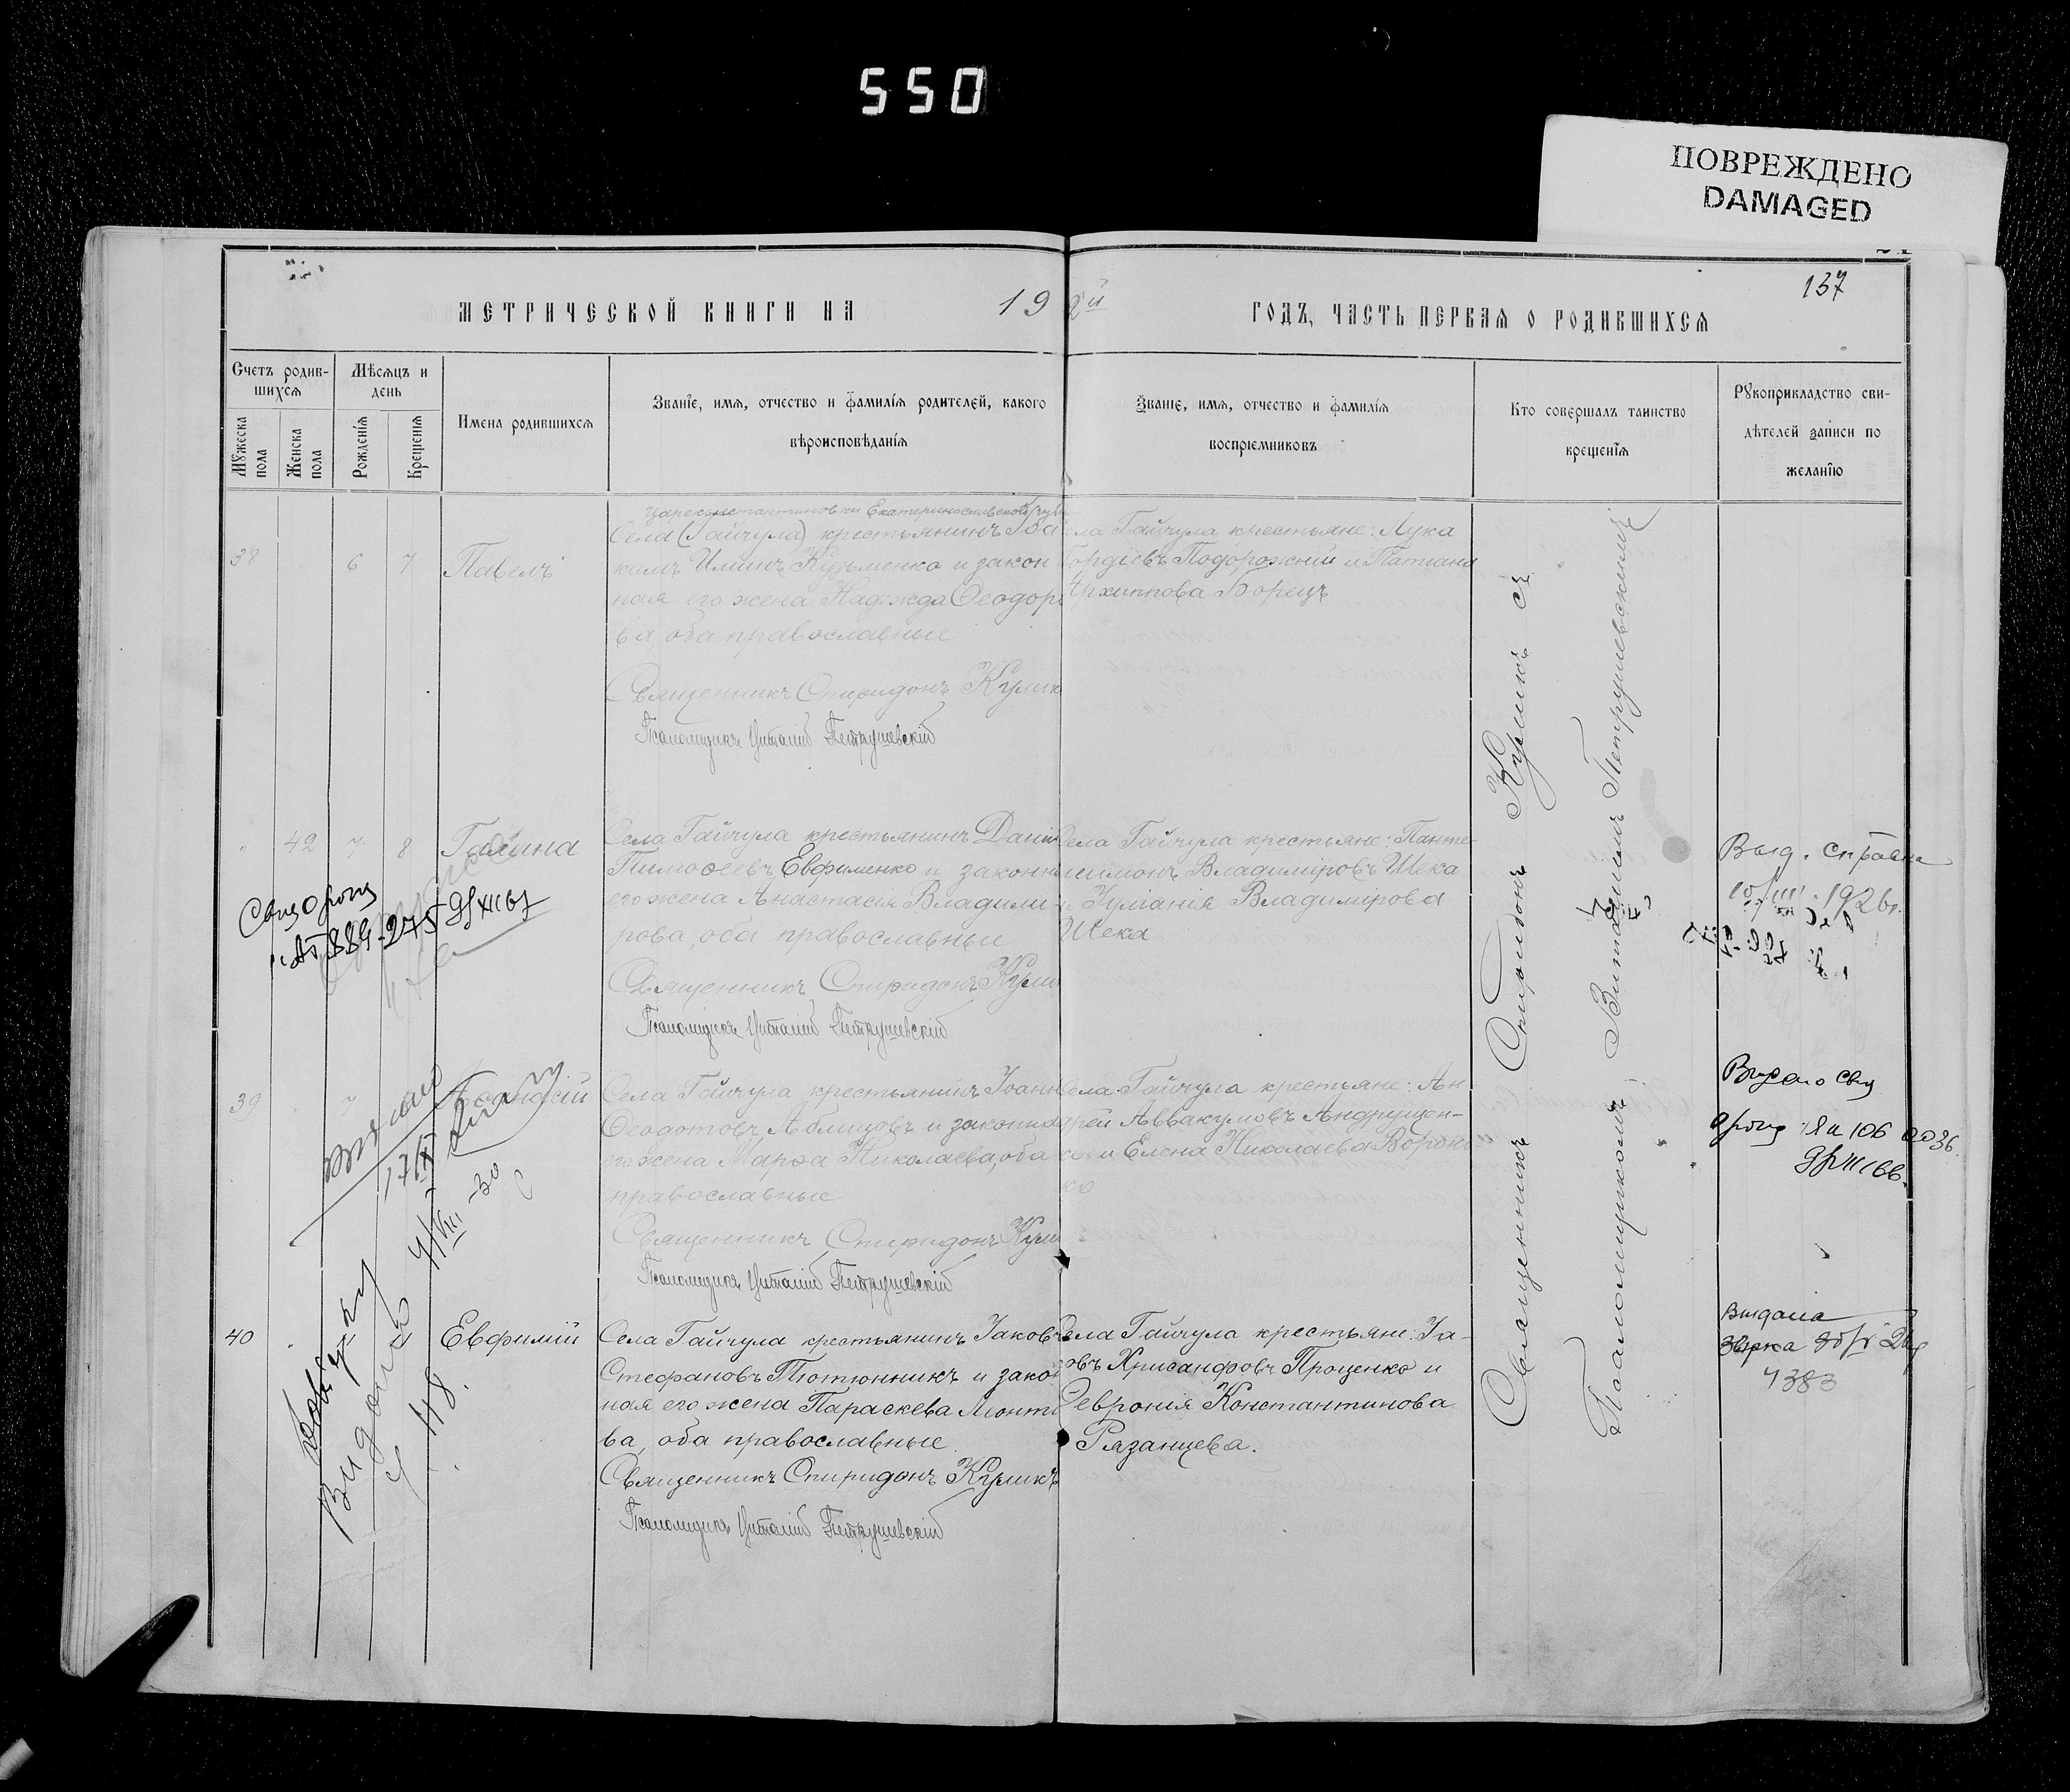 550
ПОВРЕЖДЕНО
DAMAGED
137
МЕТРИЧЕСКОЙ КНИГИ НА 19
2й ГОДЪ, ЧАСТЬ ПЕРВАЯ О РОДИВШИХСЯ
Счетъ родив-
шихся
Мѣсяцъ и
день
Мужеска
пола
Женска
пола
Рожденія
Крещенія
Имена родившихся
Званіе, имя, отчество и фамилія родителей, какого
вѣроисповѣданія
Званіе, имя, отчество и фамилія
воспріемниковъ
Кто совершалъ таинство
крещенія
Рукоприкладство сви-
дѣтелей записи по
желанію
38
6 7
Павелъ
Цареконстантиновки Екатеринославской губ
Села (Гайчула) крестьянинъ Іоа
кимъ Илиинъ Кузьменко и закон
ная его жена Надежда Ѳеодоро
ва, оба православные
Священникъ Спиридонъ Кулик
Псаломщикъ Виталій Петрушевскій
ела Гайчула крестьяне: Лука
Гордіевъ Подорожній и Татіана
Архиппова Борецъ
42 7 8
Галина
Села Гайчула крестьянинъ Даніи
Тимоѳеевъ Евфименко и законна
его жена Анастасія Владими-
рова, оба православные
Священникъ Спиридонъ Кули
Псаломщикъ Виталій Петрушевскій
Села Гайчула крестьяне: Панте
леимонъ Владиміровъ Шека
и Іуліанія Владимірова
Шека
Выд. справка
10/III 1926г.
39
7
Аѳанасій
Села Гайчула крестьянинъ Іоанн
Ѳеодотовъ Аблицовъ и законна
его жена Марѳа Николаева, оба
православные
Священникъ Спиридонъ Кули
Псаломщикъ Виталій Петрушевскій
Села Гайчула крестьяне: Ан
дрей Аввакумовъ Андрущен-
ко и Елена Николаева Ворон
ко
Видано
40
Евфимій
Села Гайчула крестьянинъ Іаковъ
Стефановъ Тютюнникъ и закон
ная его жена Параскева Леонти
ва, оба православные
Священникъ Спиридонъ Куликъ
Псаломщикъ Виталій Петрушевскій
Села Гайчула крестьяне: Іа-
ковъ Хрисанфовъ Проценко и
Феврония Константинова
Рязанцева.
Видана
4383
Священникъ Спиридонъ Куликъ съ
Псаломщикомъ Виталіемъ Петрушевскимъ